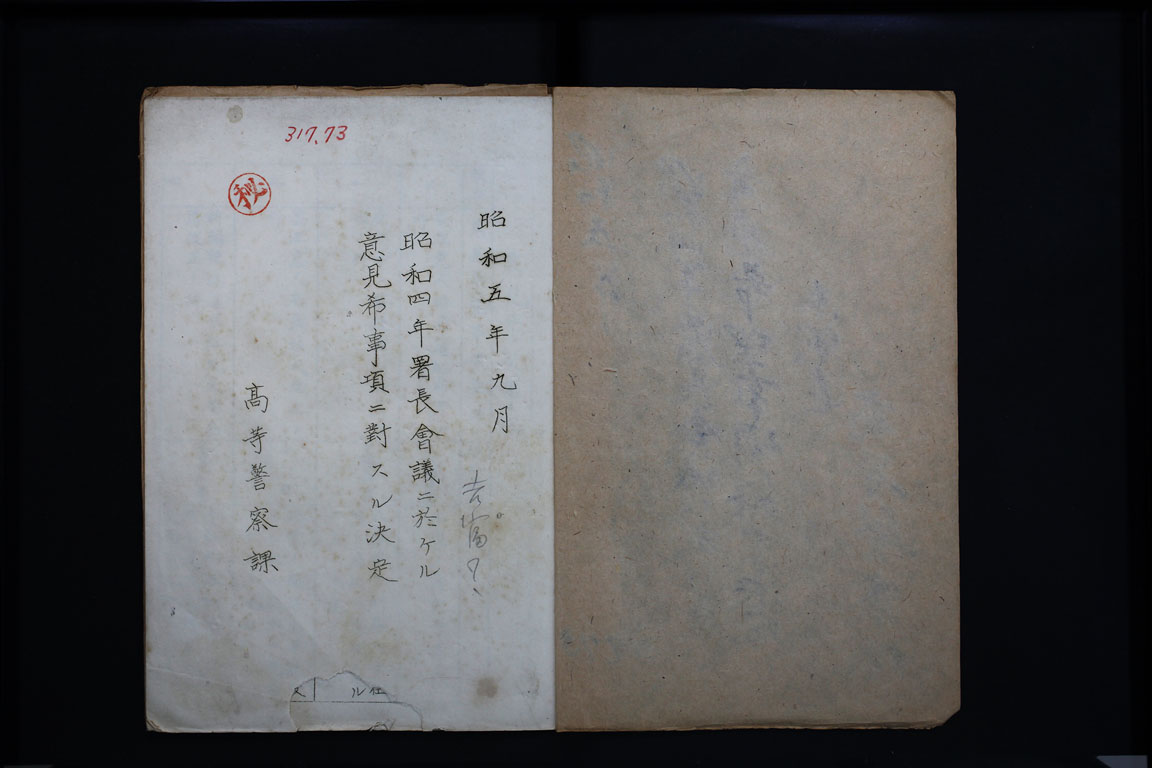 317.73
秘
昭和五年九月
昭和四年署長會議ニ於ケル
意見希事項ニ對スル決定
高等警察課
ル仕